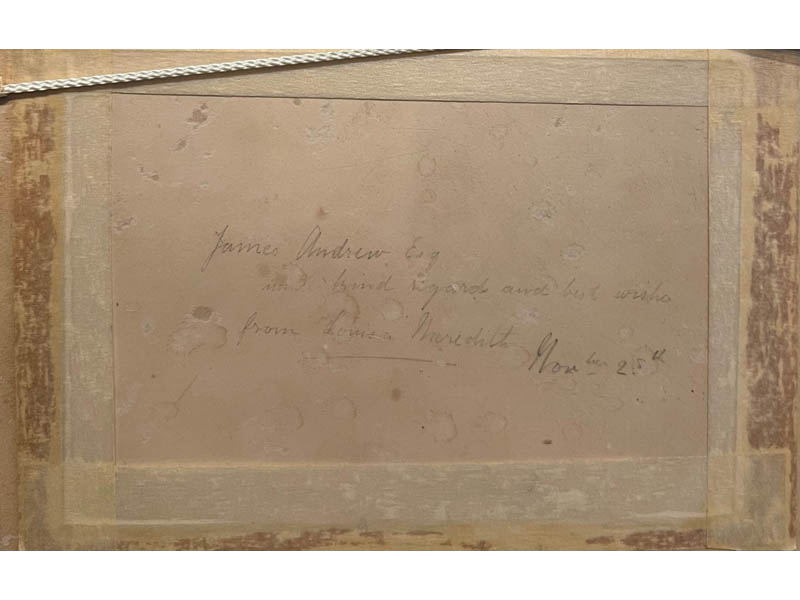 James Andrew Esq
kind regards and best wishes
from Louisa Meredith
Nov ber 25 th